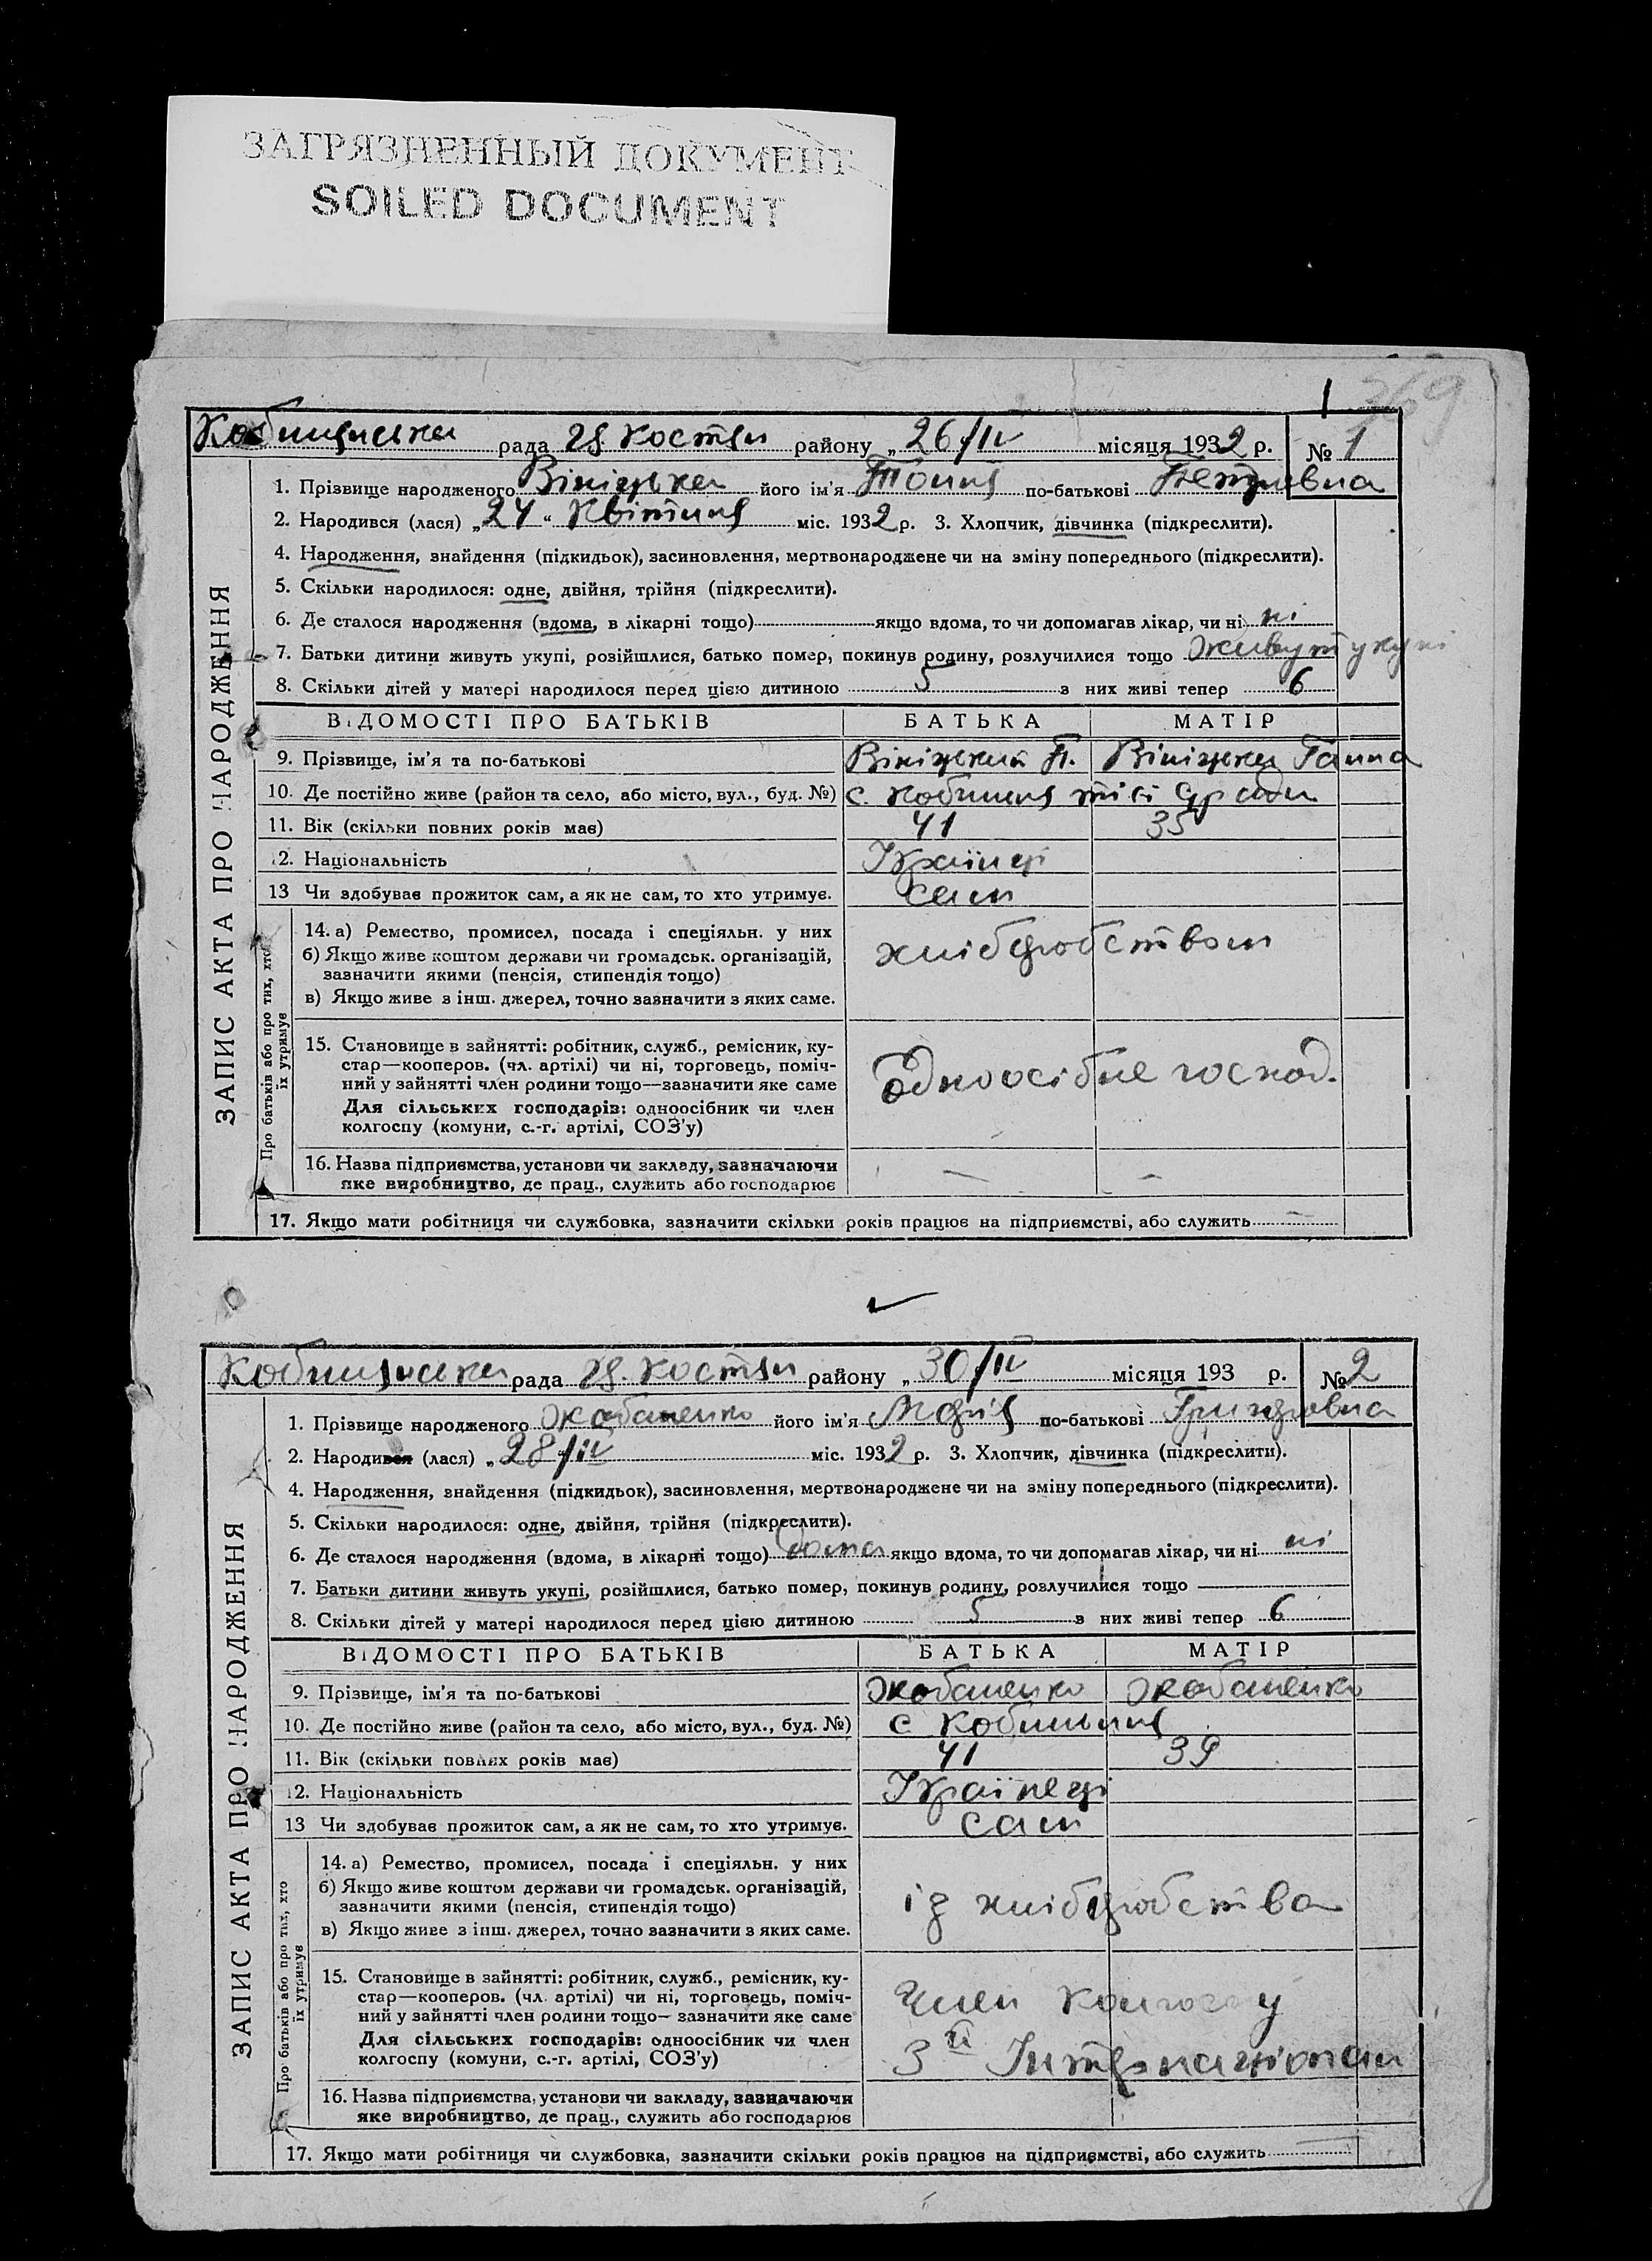 ЗАГРЯЗНЕННЫЙ ДОКУМЕНТ
SOILED DOCUMENT
1 369
рада района „ 26/IV місяця 1932 р. № 1
1. Прізвище народженого Вініцька його ім'я Тоня по-батькові Петровна
2. Народився (лася) „24“ Квітня міс. 1932 р. 3. Хлопчик, дівчинка (підкреслити).
4. Народження, знайдення (підкидьок), засиновлення, мертвонароджене чи на зміну попереднього (підкреслити).
5. Скільки народилося: одне, двійня, трійня (підкреслити).
6. Де сталося народження (вдома, в лікарні тощо) якщо вдома, то чи допомагав лікар, чи ні ні
7. Батьки дитини живуть укупі, розійшлися, батько помер, покинув родину, розлучилися тощо живут укупі
8. Скільки дітей у матері народилося перед цією дитиною 5 з них живі тепер 6
ВІДОМОСТІ ПРО БАТЬКІВ БАТЬКА МАТІР
9. Прізвище, ім'я та по-батькові Вініцький П. Вініцька Ганна
10. Де постійно живе (район та село, або місто, вул., буд. №) с.
11. Вік (скільки повних років має) 41 35
12. Національність Українці
13 Чи здобував прожиток сам, а як не сам, то хто утримує. сам
14. а) Ремество, промисел, посада і спеціяльн. у них
б) Якщо живе коштом держави чи громадськ. організацій,
зазначити якими (пенсія, стипендія тощо)
в) Якщо живе з інш. джерел, точно зазначити з яких саме.
хлібробством
15. Становище в зайнятті: робітник, служб., ремісник, ку-
стар—кооперов. (чл. артілі) чи ні, торговець, поміч-
ний у зайнятті член родини тощо—зазначити яке саме
Для сільських господарів: одноосібник чи член
колгоспу (комуни, с.-г. артілі, СОЗ'у)
одноосібне господ.
16. Назва підприємства, установи чи закладу, зазначаючи
яке виробництво, де прац., служить або господарює
— —
17. Якщо мати робітниця чи службовка, зазначити скільки років працює на підприємстві, або служить —
ЗАПИС АКТА ПРО НАРОДЖЕННЯ
Про батьків або про тих, хто
їх утримує
рада району „ 30/IV місяця 193 р. № 2
1. Прізвище народженого його ім'я Марія по-батькові
2. Народився (лася) „28/IV міс. 1932 р. 3. Хлопчик, дівчинка (підкреслити).
4. Народження, знайдення (підкидьок), засиновлення, мертвонароджене чи на зміну попереднього (підкреслити).
5. Скільки народилося: одне, двійня, трійня (підкреслити).
6. Де сталося народження (вдома, в лікарні тощо) дома якщо вдома, то чи допомагав лікар, чи ні ні
7. Батьки дитини живуть укупі, розійшлися, батько помер, покинув родину, розлучилися тощо
8. Скільки дітей у матері народилося перед цією дитиною 5 з них живі тепер 6
ВІДОМОСТІ ПРО БАТЬКІВ БАТЬКА МАТІР
9. Прізвище, ім'я та по-батькові
10. Де постійно живе (район та село, або місто, вул., буд. №) с
11. Вік (скільки повних років має) 41 39
12. Національність Українеці
13 Чи здобував прожиток сам, а як не сам, то хто утримує. сам
14. а) Ремество, промисел, посада і спеціяльн. у них
б) Якщо живе коштом держави чи громадськ. організацій,
зазначити якими (пенсія, стипендія тощо)
в) Якщо живе з інш. джерел, точно зазначити з яких саме.
із хлібробства
15. Становище в зайнятті: робітник, служб., ремісник, ку-
стар—кооперов. (чл. артілі) чи ні, торговець, поміч-
ний у зайнятті член родини тощо— зазначити яке саме
Для сільських господарів: одноосібник чи член
колгоспу (комуни, с.-г. артілі, СОЗ'у)
Член колгоспу
3й Інтернаціонал
16. Назва підприємства, установи чи закладу, зазначаючи
яке виробництво, де прац., служить або господарює
17. Якщо мати робітниця чи службовка, зазначити скільки років працює на підприємстві, або служить
ЗАПИС АКТА ПРО НАРОДЖЕННЯ
Про батьків або про тих, хто
їх утримує